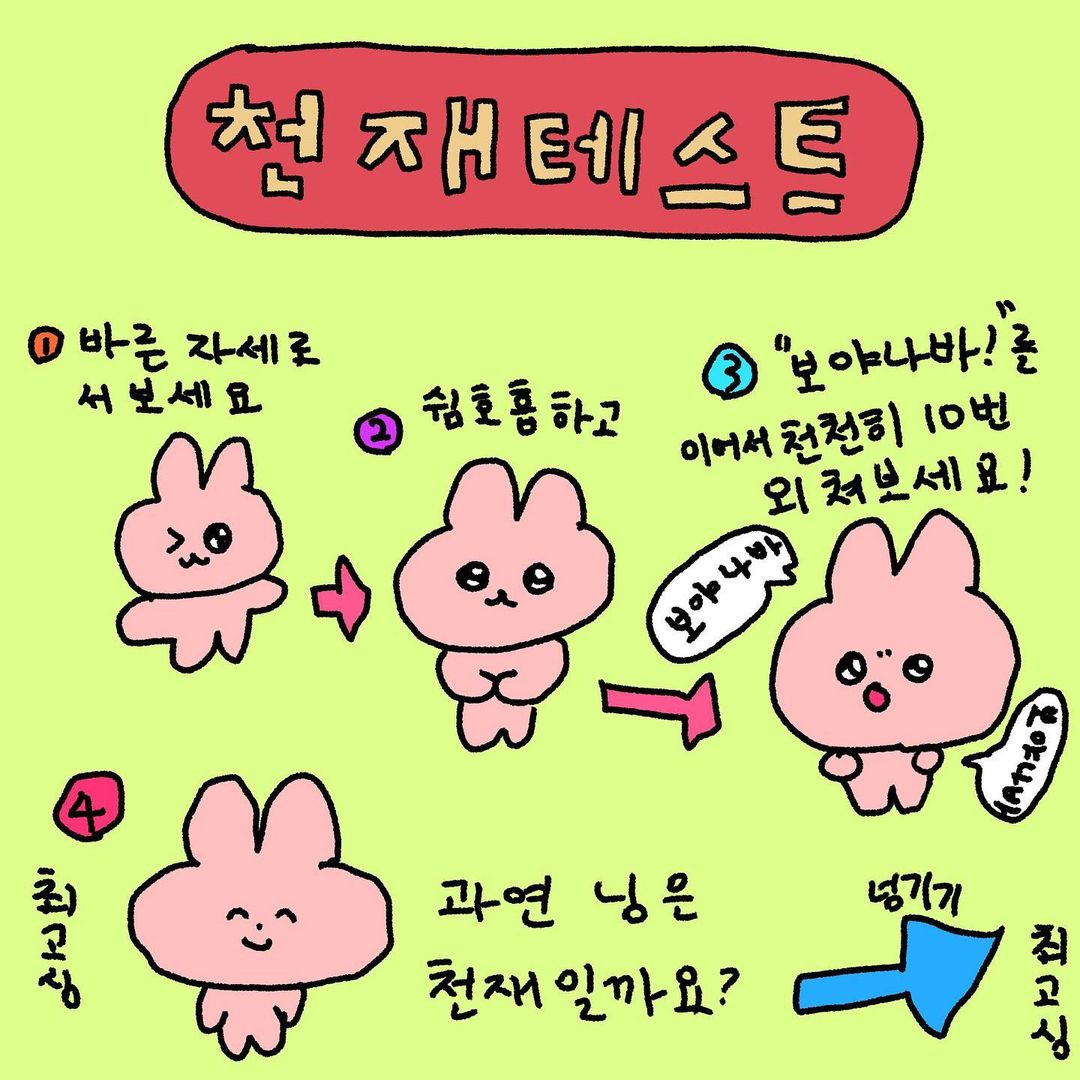 천재테스트
1 바른 자세로
서 보세요
2 쉼호흡하고
3 "보야나바!"를
이어서 천천히 10번
외쳐보세요!
보야나바
4
최고심
과연 닝은
천재일까요?
넘기기
최고심